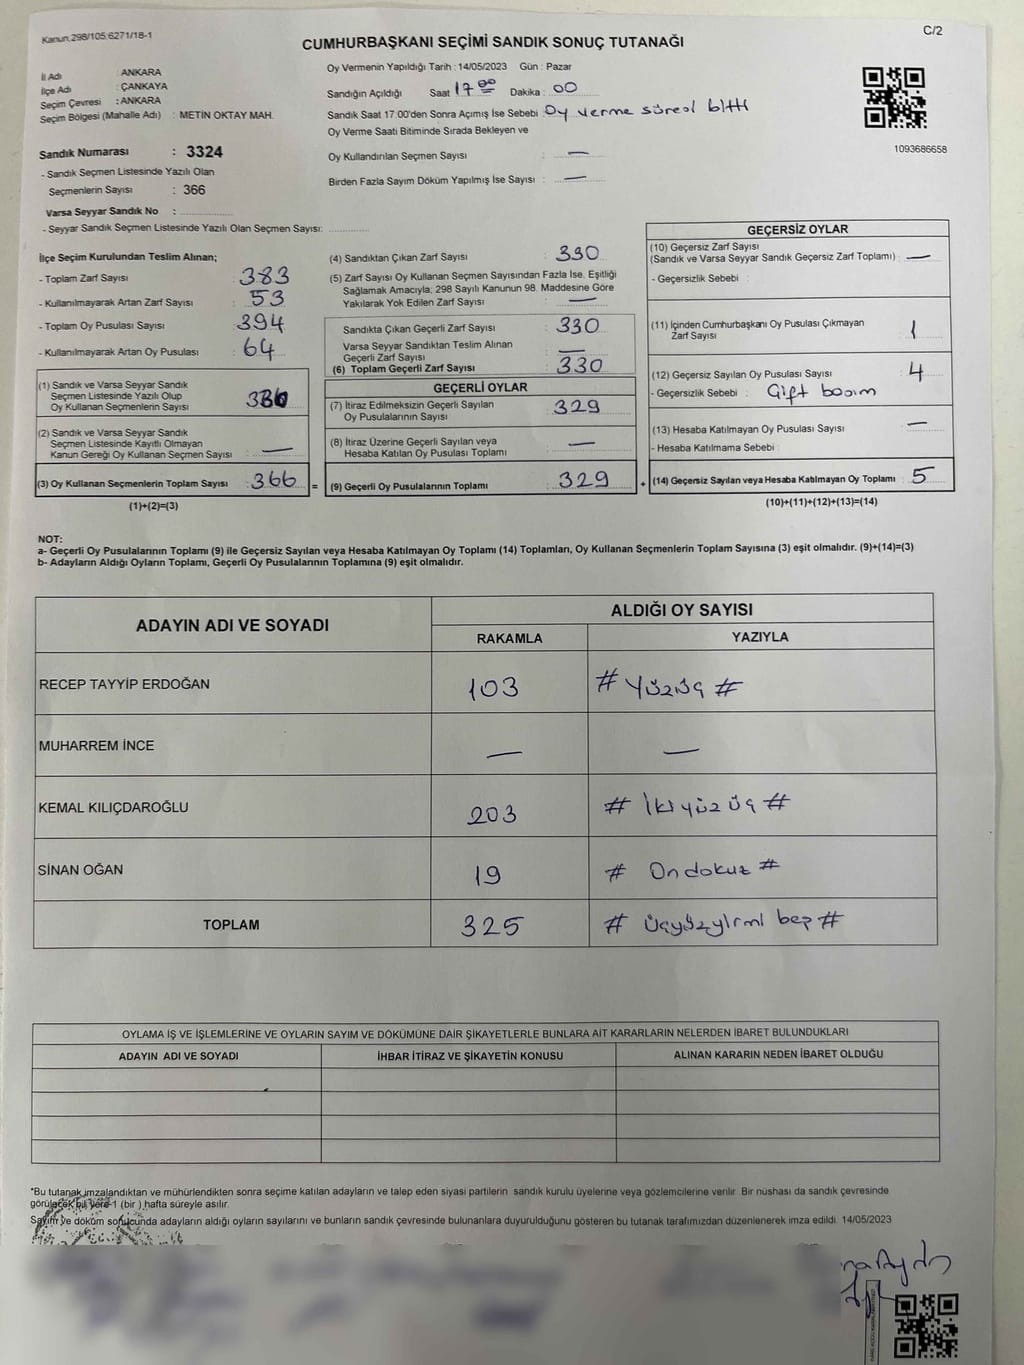 Kanun:298/105;6271/18-1
C/2
CUMHURBAŞKANI SEÇİMİ SANDIK SONUÇ TUTANAĞI
İl Adı : ANKARA
İlçe Adı : ÇANKAYA
Seçim Çevresi : ANKARA
Seçim Bölgesi (Mahalle Adı) : METİN OKTAY MAH.
Sandık Numarası : 3324
- Sandık Seçmen Listesinde Yazılı Olan
Seçmenlerin Sayısı : 366
Varsa Seyyar Sandık No :
- Seyyar Sandık Seçmen Listesinde Yazılı Olan Seçmen Sayısı:
Oy Vermenin Yapıldığı Tarih : 14/05/2023 Gün : Pazar
Sandığın Açıldığı Saat 17:00 Dakika : 00
Sandık Saat 17:00'den Sonra Açımış İse Sebebi : Oy verme süresi bitti
Oy Verme Saati Bitiminde Sırada Bekleyen ve
Oy Kullandırılan Seçmen Sayısı : —
Birden Fazla Sayım Döküm Yapılmış İse Sayısı : —
1093686658
İlçe Seçim Kurulundan Teslim Alınan;
- Toplam Zarf Sayısı : 383
- Kullanılmayarak Artan Zarf Sayısı : 53
- Toplam Oy Pusulası Sayısı : 394
- Kullanılmayarak Artan Oy Pusulası : 64
(1) Sandık ve Varsa Seyyar Sandık
Seçmen Listesinde Yazılı Olup
Oy Kullanan Seçmenlerin Sayısı
(2) Sandık ve Varsa Seyyar Sandık
Seçmen Listesinde Kayıtlı Olmayan
Kanun Gereği Oy Kullanan Seçmen Sayısı : —
(3) Oy Kullanan Seçmenlerin Toplam Sayısı : 366 =
(1)+(2)=(3)
(4) Sandıktan Çıkan Zarf Sayısı : 330
(5) Zarf Sayısı Oy Kullanan Seçmen Sayısından Fazla İse, Eşitliği
Sağlamak Amacıyla; 298 Sayılı Kanunun 98. Maddesine Göre
Yakılarak Yok Edilen Zarf Sayısı : —
Sandıkta Çıkan Geçerli Zarf Sayısı : 330
Varsa Seyyar Sandıktan Teslim Alınan
Geçerli Zarf Sayısı : —
(6) Toplam Geçerli Zarf Sayısı : 330
GEÇERLİ OYLAR
(7) İtiraz Edilmeksizin Geçerli Sayılan
Oy Pusulalarının Sayısı : 329
(8) İtiraz Üzerine Geçerli Sayılan veya
Hesaba Katılan Oy Pusulası Toplamı : —
(9) Geçerli Oy Pusulalarının Toplamı : 329 +
GEÇERSİZ OYLAR
(10) Geçersiz Zarf Sayısı
(Sandık ve Varsa Seyyar Sandık Geçersiz Zarf Toplamı) : —
- Geçersizlik Sebebi :
(11) İçinden Cumhurbaşkanı Oy Pusulası Çıkmayan
Zarf Sayısı : 1
(12) Geçersiz Sayılan Oy Pusulası Sayısı : 4
- Geçersizlik Sebebi : Çift basım
(13) Hesaba Katılmayan Oy Pusulası Sayısı : —
- Hesaba Katılmama Sebebi :
(14) Geçersiz Sayılan veya Hesaba Katılmayan Oy Toplamı : 5
(10)+(11)+(12)+(13)=(14)
NOT:
a- Geçerli Oy Pusulalarının Toplamı (9) ile Geçersiz Sayılan veya Hesaba Katılmayan Oy Toplamı (14) Toplamları, Oy Kullanan Seçmenlerin Toplam Sayısına (3) eşit olmalıdır. (9)+(14)=(3)
b- Adayların Aldığı Oyların Toplamı, Geçerli Oy Pusulalarının Toplamına (9) eşit olmalıdır.
ADAYIN ADI VE SOYADI ALDIĞI OY SAYISI
RAKAMLA YAZIYLA
RECEP TAYYİP ERDOĞAN 103 # Yüzüç #
MUHARREM İNCE — —
KEMAL KILIÇDAROĞLU 203 # İkiyüzüç #
SİNAN OĞAN 19 # Ondokuz #
TOPLAM 325 # Üçyüzyirmi beş #
OYLAMA İŞ VE İŞLEMLERİNE VE OYLARIN SAYIM VE DÖKÜMÜNE DAİR ŞİKAYETLERLE BUNLARA AİT KARARLARIN NELERDEN İBARET BULUNDUKLARI
ADAYIN ADI VE SOYADI İHBAR İTİRAZ VE ŞİKAYETİN KONUSU ALINAN KARARIN NEDEN İBARET OLDUĞU
*Bu tutanak imzalandıktan ve mühürlendikten sonra seçime katılan adayların ve talep eden siyasi partilerin sandık kurulu üyelerine veya gözlemcilerine verilir. Bir nüshası da sandık çevresinde
görülecek bir yere 1 (bir) hafta süreyle asılır.
Sayım ve döküm sonucunda adayların aldığı oyların sayılarını ve bunların sandık çevresinde bulunanlara duyurulduğunu gösteren bu tutanak tarafımızdan düzenlenerek imza edildi. 14/05/2023